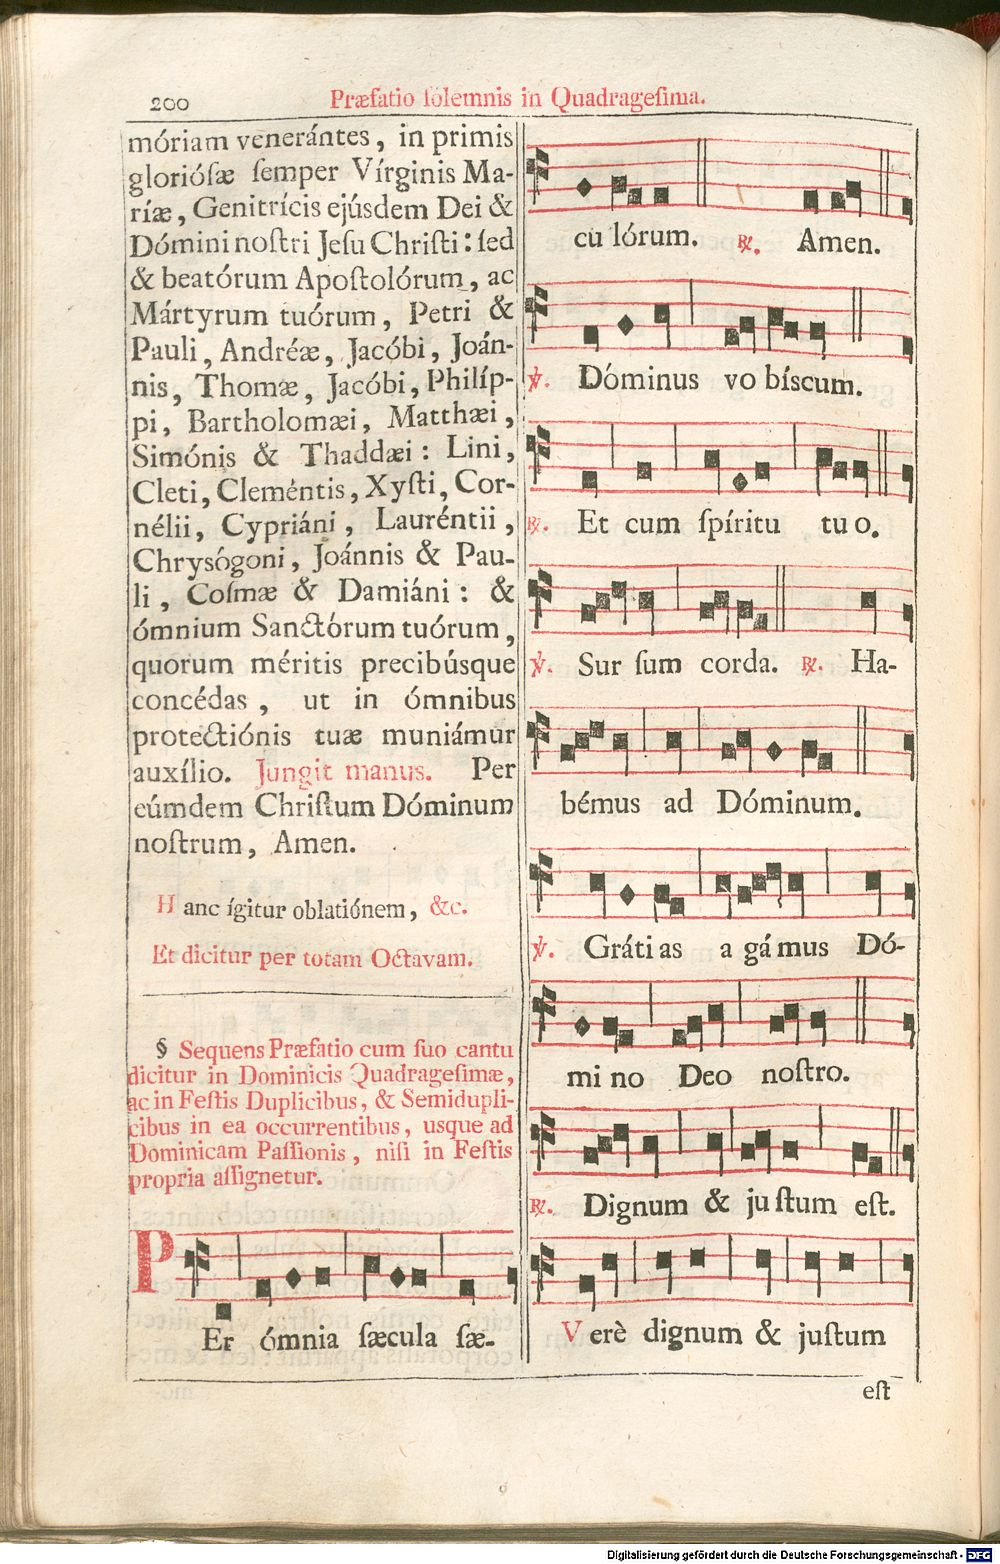 200
Præfatio ſolemnis in Quadrageſima.
móriam venerántes, in primis
glorióſæ ſemper Vírginis Ma-
ríæ, Genitrícis ejúsdem Dei &
Dómini noſtri Jeſu Chriſti: ſed
& beatórum Apoſtolórum, ac
Mártyrum tuórum, Petri &
Pauli, Andréæ, Jacóbi, Joán-
nis, Thomæ, Jacóbi, Philíp-
pi, Bartholomæi, Matthæi,
Simónis & Thaddæi: Lini,
Cleti, Cleméntis, Xyſti, Cor-
nélii, Cypriáni, Lauréntii,
Chrysógoni, Joánnis & Pau-
li, Coſmæ & Damiáni: &
ómnium Sanctórum tuórum,
quorum méritis precibúsque
concédas, ut in ómnibus
protectiónis tuæ muniámur
auxílio. Jungit manus. Per
eúmdem Chriſtum Dóminum
noſtrum, Amen.
Hanc ígitur oblatiónem, &c.
Et dicitur per totam Octavam.
§ Sequens Præfatio cum ſuo cantu
dicitur in Dominicis Quadrageſimæ,
ac in Feſtis Duplicibus, & Semidupli-
cibus in ea occurrentibus, usque ad
Dominicam Paſſionis, niſi in Feſtis
propria aſſignetur.
PEr ómnia ſæcula ſæ-
cu lórum. ℟. Amen.
℣. Dóminus vo bíscum.
℟. Et cum ſpíritu tu o.
℣. Sur ſum corda. ℟. Ha-
bémus ad Dóminum.
℣. Gráti as a gá mus Dó-
mi no Deo noſtro.
℟. Dignum & ju ſtum eſt.
Verè dignum & juſtum
eſt
Digitalisierung gefördert durch die Deutsche Forschungsgemeinschaft - DFG